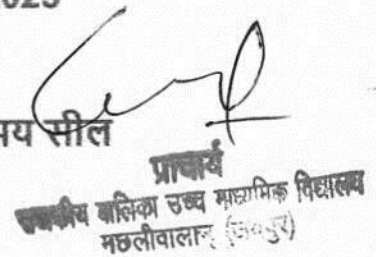 2023
मय सील
प्राचार्य
राजकीय बालिका उच्च माध्यमिक विद्यालय
मछलीवालान (जयपुर)